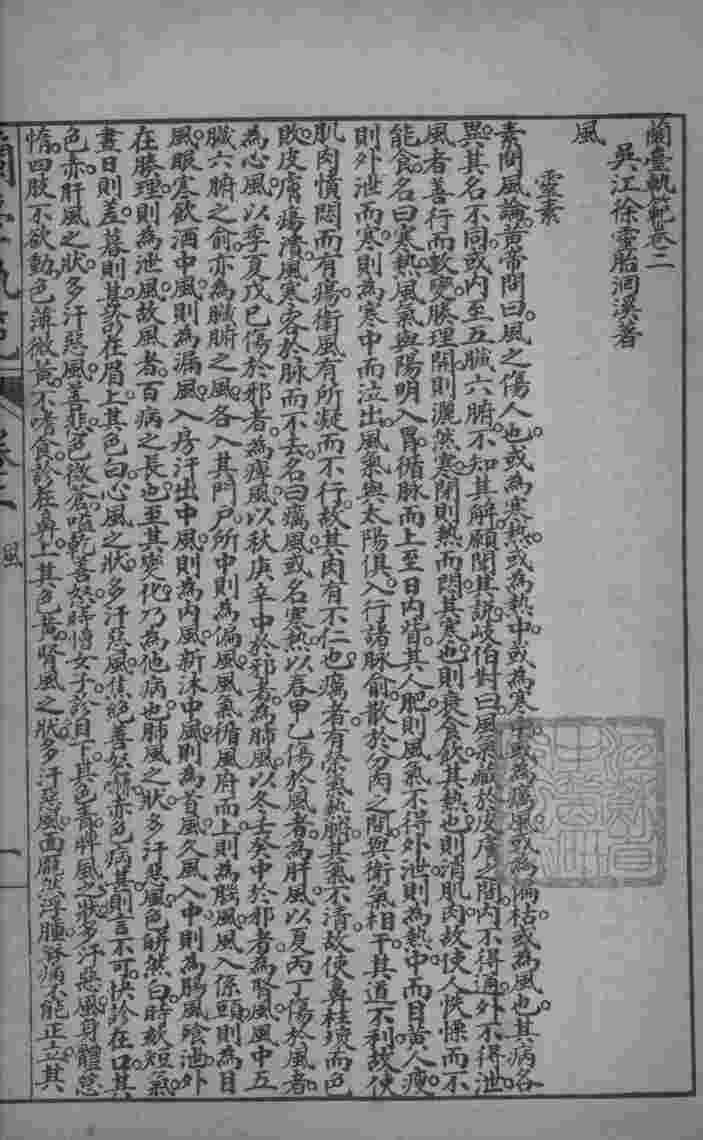 蘭臺軌範卷二
吳江徐靈胎洄溪著
風
靈素
素問風論黃帝問曰風之傷人也或為寒熱或為熱中或為寒中或為癘風或為偏枯或為風也其病各
異其名不同或內至五臟六腑不知其解願聞其說岐伯對曰風氣藏於皮膚之間內不得通外不得泄
風者善行而數變腠理開則灑然寒閉則熱而悶其寒也則衰食飲其熱也則消肌肉故使人怢慄而不
能食名曰寒熱風氣與陽明入胃循脉而上至目內眥其人肥則風氣不得外泄則為熱中而目黃人瘦
則外泄而寒則為寒中而泣出風氣與太陽俱入行諸脉俞散於分肉之間與衛氣相干其道不利故使
肌肉憤䐜而有瘍衛風有所凝而不行故其肉有不仁也癘者有榮氣熱胕其氣不清故使鼻柱壞而色
敗皮膚瘍潰風寒客於脉而不去名曰癘風或名寒熱以春甲乙傷於風者為肝風以夏丙丁傷於風者
為心風以季夏戊己傷於邪者為脾風以秋庚辛中於邪者為肺風以冬壬癸中於邪者為腎風風中五
臟六腑之俞亦為臟腑之風各入其門戶所中則為偏風風氣循風府而上則為腦風風入係頭則為目
風眼寒飲酒中風則為漏風入房汗出中風則為內風新沐中風則為首風久風入中則為腸風飧泄外
在腠理則為泄風故風者百病之長也至其變化乃為他病也肺風之狀多汗惡風色皏然白時欬短氣
晝日則差暮則甚診在眉上其色白心風之狀多汗惡風焦絕善怒嚇赤色病甚則言不可快診在口其
色赤肝風之狀多汗惡風善悲色微蒼嗌乾善怒時憎女子診目下其色青脾風之狀多汗惡風身體怠
惰四肢不欲動色薄微黃不嗜食診在鼻上其色黃腎風之狀多汗惡風面龐然浮腫脊痛不能正立其
卷二
風
一